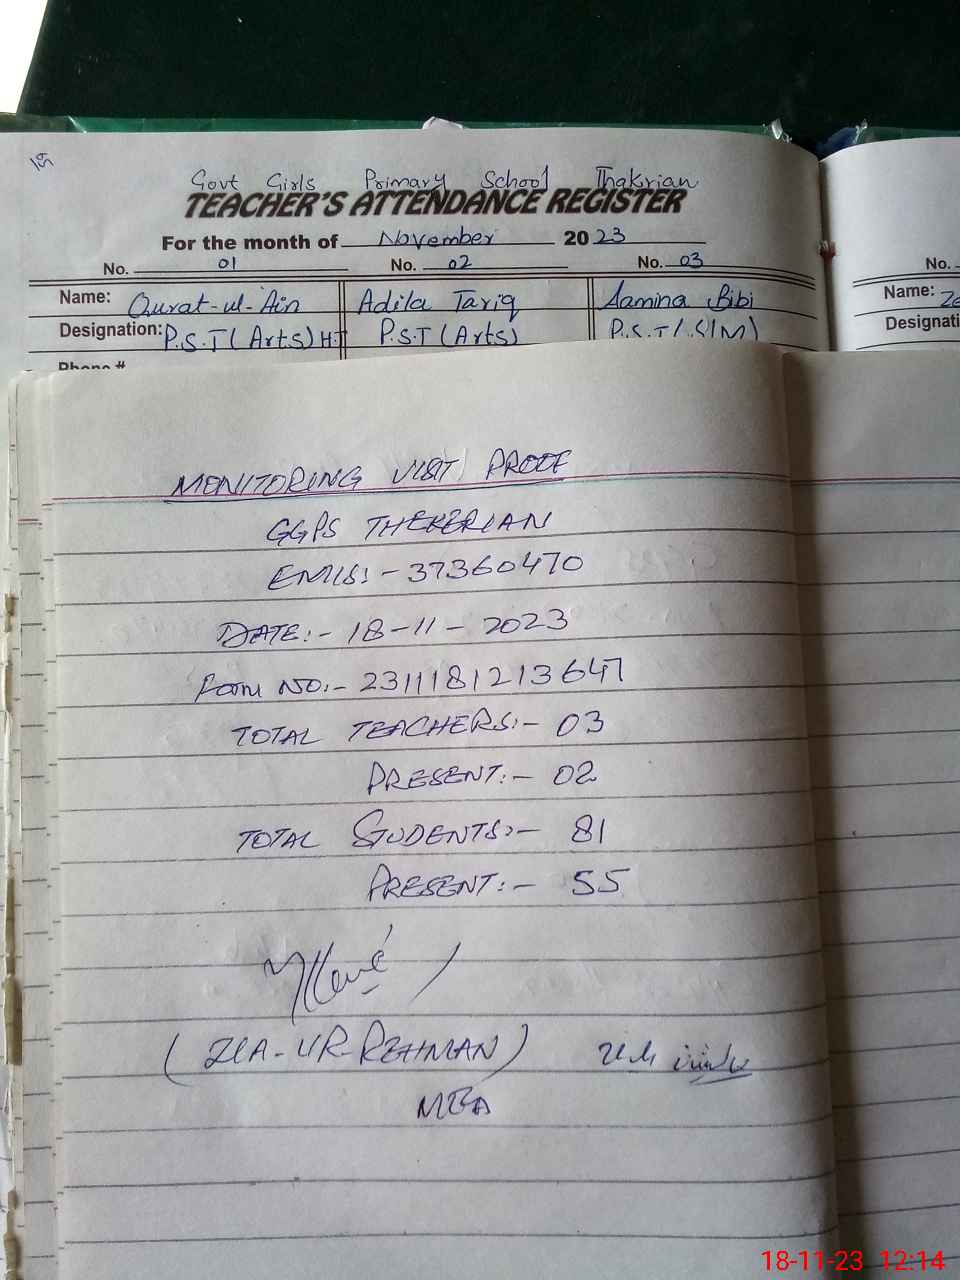 Govt Girls Primary School Thakrian
TEACHER'S ATTENDANCE REGISTER
For the month of November 2023
No. 01 No. 02 No. 03 No.
Name: Qurat-ul-Ain Adila Tariq Samina Bibi Name:
Designation: P.S.T (Arts) H.T P.S.T (Arts) P.S.T (S/M) Designati
Phone #
MONITORING VISIT PROOF
GGPS THEKERIAN
EMIS:- 37360470
DATE:- 18-11-2023
Form NO:- 2311181213647
TOTAL TEACHERS:- 03
PRESENT:- 02
TOTAL STUDENTS:- 81
PRESENT:- 55
(ZIA-UR-REHMAN)
MEA
18-11-23 12:14